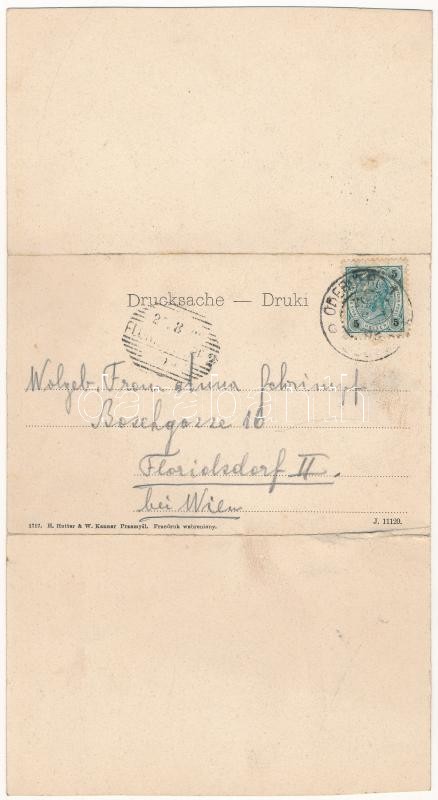 Drucksache — Druki
5
5 5
Wolgeb. Frau Anna Schrimpf
Boschgasse 16
Floridsdorf II.
bei Wien
1717. H. Hutter & W. Kanner Przemyśl. Przedruk wzbroniony.
J. 11120.
darabanth